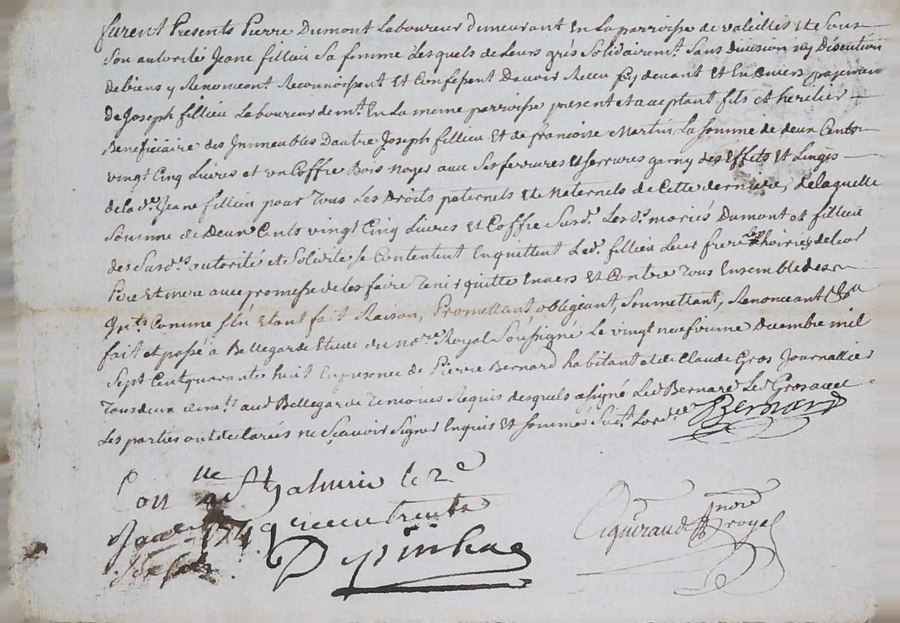 furent Presents Pierre Dumont Laboureur demeurant En La parroisse de valeilles et de Sous
Son autorité Jeane fillieu Sa femme Lesquels de Leurs grés Solidairemt. Sans division ny Discution
de biens y Renonceant Reconnoissent Et Confessent Devoir Receu Cy devant et En divers payemens
De Joseph fillieu Laboureur demt. En La meme parroisse present et acceptant fils et heritier
Beneficiaire des Immeubles Dautre Joseph fillieu Et de francoise Martin, La somme de deux Cents
vingt Cinq Livres et un Coffre Bois Noyer aux Ses ferrures et serrures garny des Effets et Linges
de La de. Jeane fillieu pour Tous Les Droits paternels Et de Maternels de Cette derniere, de laquelle
Somme de Deux Cents vingt Cinq Livres et Coffre Susd. Les ds. mariés Dumont et fillieu
des Susd. autorité et Solidité Se Contentent En quittent Led. fillieu Leur frere Les hoiries de Leur
Pere Et mere avec promesse de Les faire Tenir quitte Envers Et Contre Tous Ensemble des
Ints. Comme S'en Etant fait Raison, Promettant, obligeant, Soumettant, Renonceant &a
fait et passé à Bellegarde Etude du nore. Royal Soussigné Le vingt neufvieme Decembre mil
Sept Cent quarante huit En presence de Pierre Bernard habitant et de Claude Gros Journallier
Tous deux demts. aud Bellegarde Temoins Requis desquels a signé Led Bernard Led Gros avec
Les parties ont declarés ne Sçavoir Signer Enquis Et Sommés
Bernard
Con lle a St galmier le 2e
1749
Depinhac
Ciguiraud Nore royal